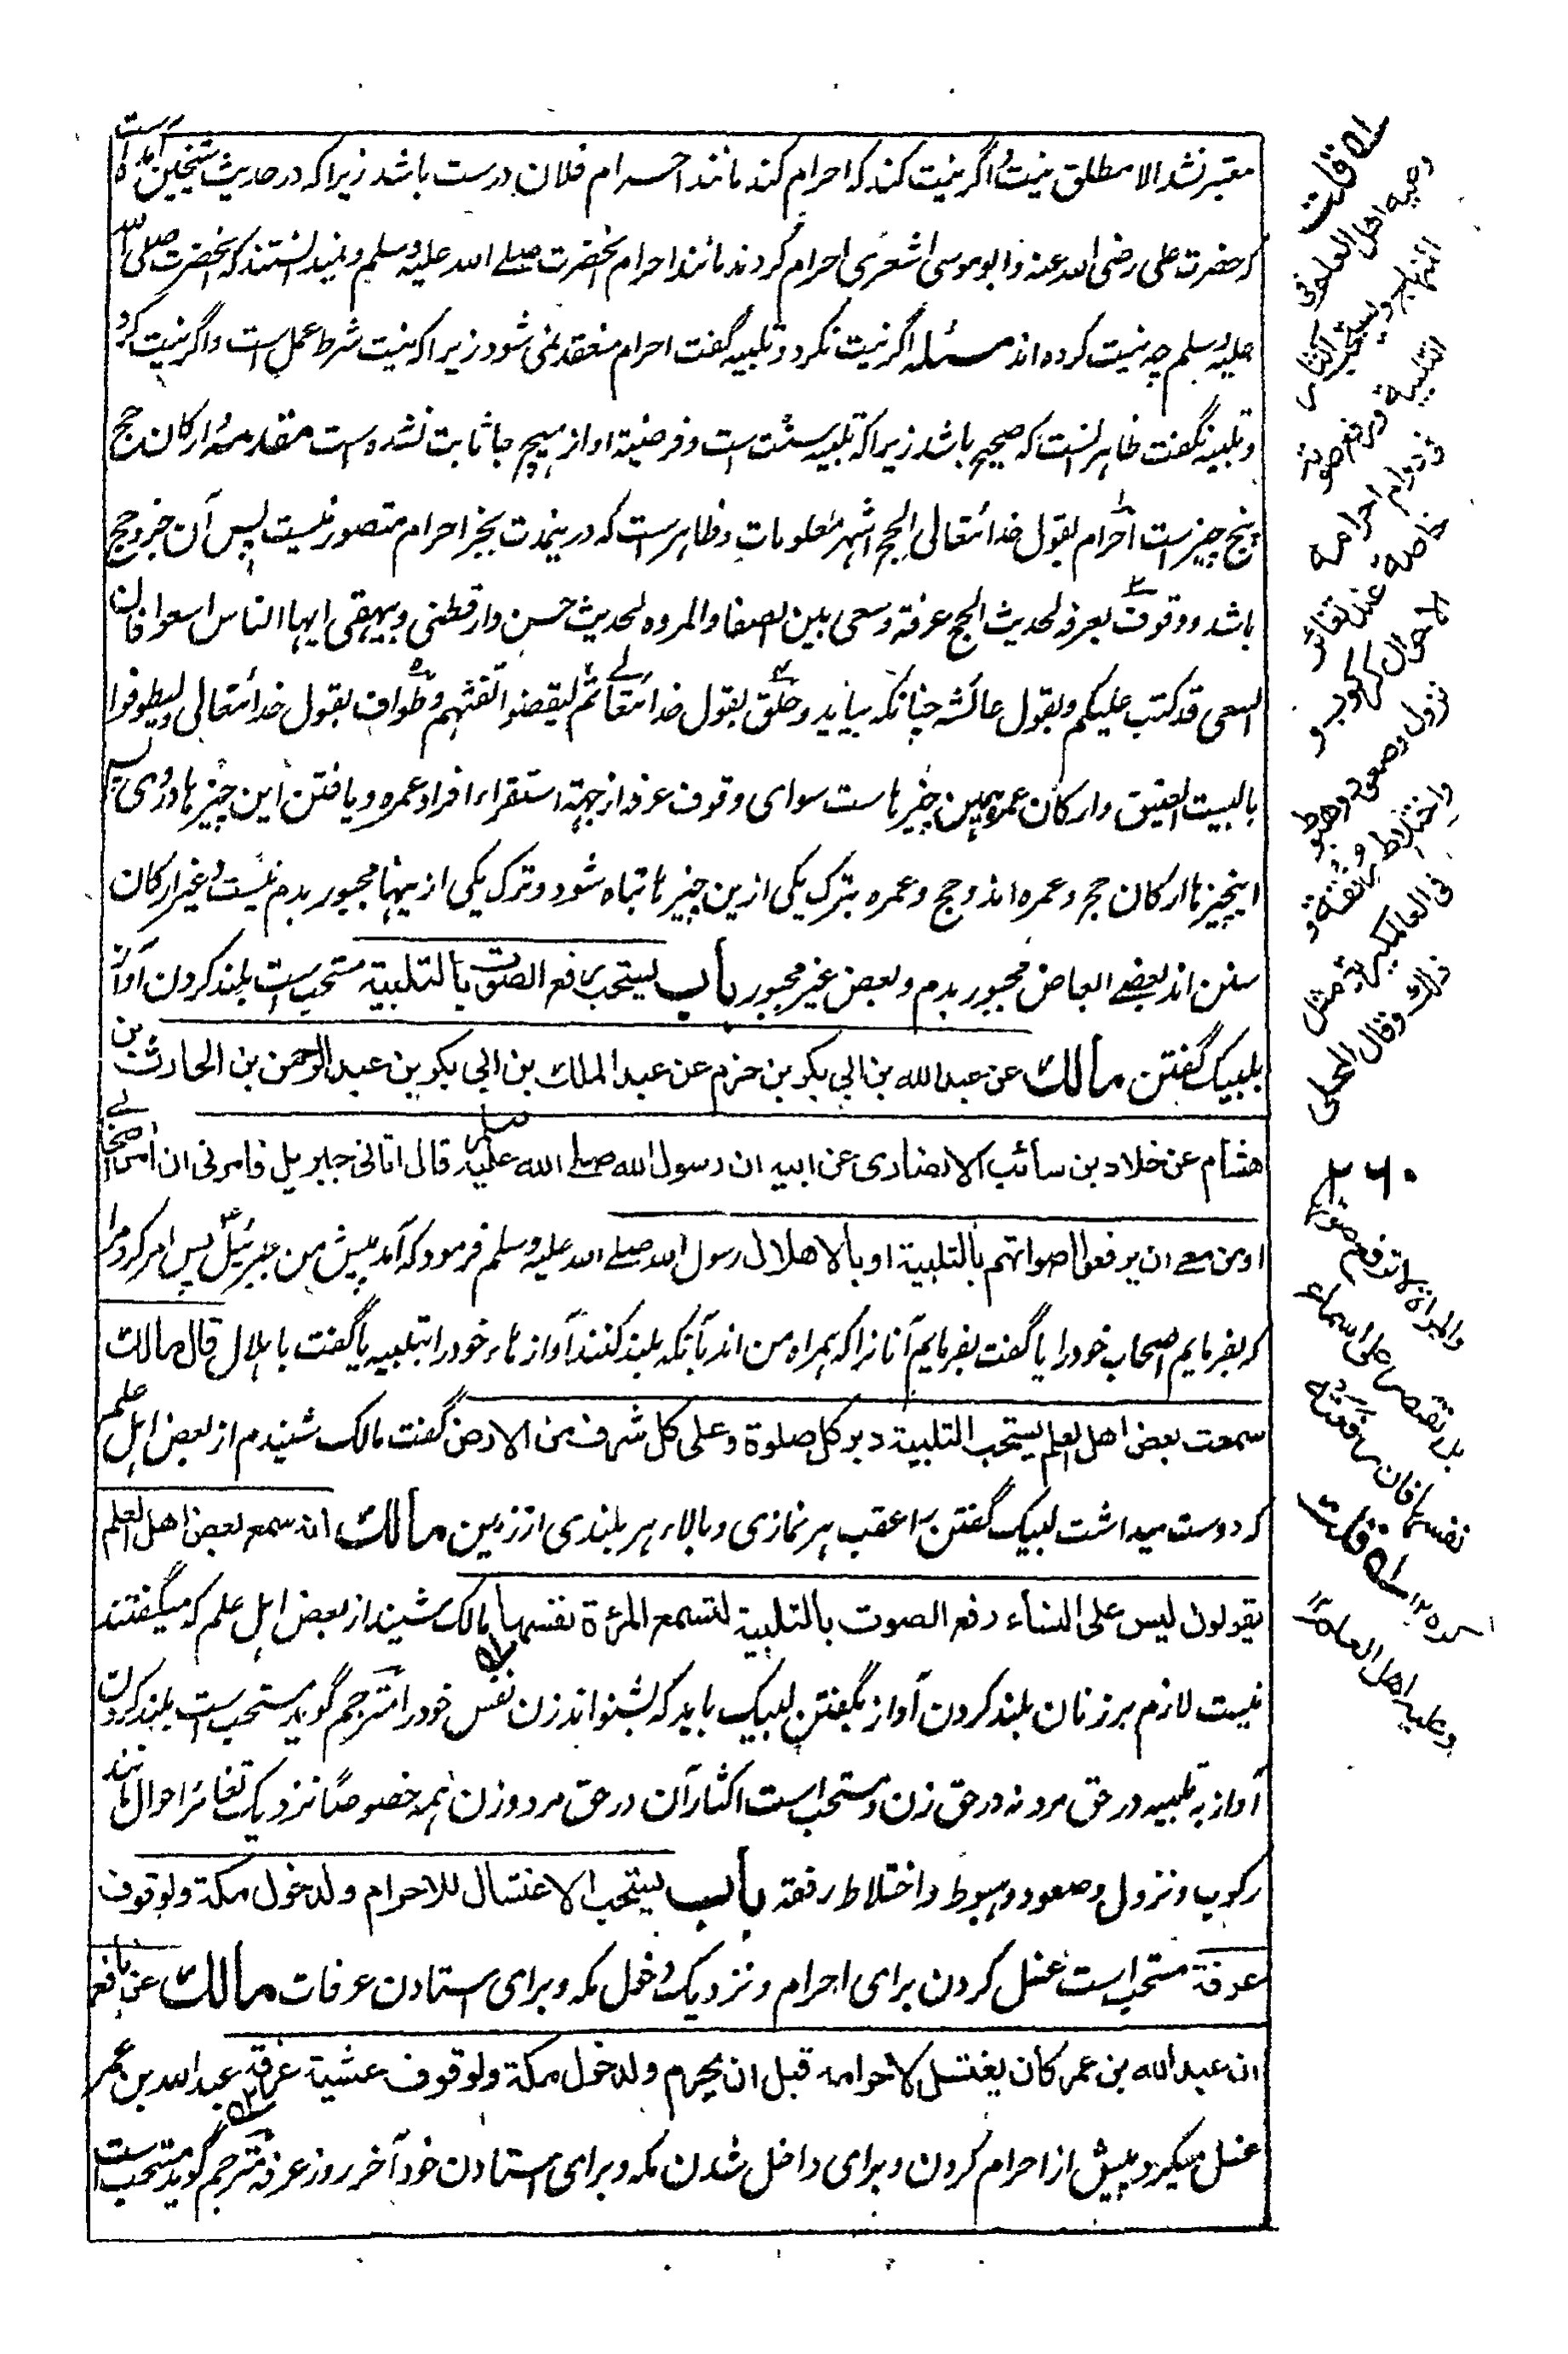 معتبر نشد الا مطلق نیت و اگر نیت کند که احرام کند مانند احرام فلان درست باشد زیرا که در حدیث شیخین آمده است
که حضرت علی رضی الله عنه و ابو موسی اشعری احرام کردند مانند احرام آنحضرت صلے الله علیه وسلم و نمیدانستند که آنحضرت صلی الله
علیه وسلم چه نیت کرده اند مسئله اگر نیت نکرد و تلبیه گفت احرام منعقد نمی شود زیرا که نیت شرط عمل است و اگر نیت کرد
و تلبیه نگفت ظاهر آنست که صحیح باشد زیرا که تلبیه سنت است و فرضیة او از هیچ جا ثابت نشده است مقدمه ارکان حج
پنج چیز است احرام لقول خدا تعالی الحج اشهر معلومات و ظاهر است که درینمدت بجز احرام متصور نیست پس آن جزو حج
باشد و وقوف بعرفه لحدیث الحج عرفة وسعی بین الصفا والمروه لحدیث حسن دارقطنی و بیهقی ایها الناس اسعوا فان
السعی قد کتب علیکم و بقول عائشه چنانکه بیاید و حلق بقول خدا تعالے ثم لیقضوا تفثهم و طواف بقول خدا تعالی ولیطوفوا
بالبیت العتیق و ارکان عمره همین چیزهاست سوای وقوف عرفه از جهة استقراء افراد عمره و یافتن این چیزها دروی
اینچیزها ارکان حج و عمره اند و حج و عمره بترک یکی ازین چیزها تباه شود و ترک یکی ازینها مجبور بدم نیست و غیر ارکان
سنن اند بعضے ابعاض مجبور بدم و بعض غیر مجبور باب یستحب رفع الصوت بالتلبیة مستحب است بلند کردن آواز
بلبیک گفتن مالك عن عبد الله بن ابی بکر بن حزم عن عبد الملك بن ابی بکر بن عبد الرحمن بن الحارث بن
هشام عن خلاد بن سائب الانصاری عن ابیه ان رسول الله صلے الله علیه وسلم قال اتانی جبریل فامرنی ان آمر اصحابے
او من معے ان یرفعوا اصواتهم بالتلبیة او بالاهلال رسول الله صلے الله علیه وسلم فرمود که آمد پیش من جبرئیل پس امر کرد مرا
که بفرمایم اصحاب خود را یا گفت بفرمایم آنانرا که همراه من اند بآنکه بلند کنند آوازهاء خود را بتلبیه یا گفت باهلال قال مالك
سمعت بعض اهل العلم یستحب التلبیة دبر کل صلوة وعلی کل شرف من الارض گفت مالک شنیدم از بعض اهل علم
که دوست میداشت لبیک گفتن را عقب هر نمازی و بالاء هر بلندی از زمین مالك انه سمع بعض اهل العلم
یقولون لیس علی النساء رفع الصوت بالتلبیة لتسمع المرءة نفسها مالک شنید از بعض اهل علم که میگفتند
نیست لازم بر زنان بلند کردن آواز بگفتن لبیک باید که بشنواند زن نفس خود را مترجم گوید مستحب است بلند کردن
آواز به تلبیه در حق مرد نه در حق زن و مستحب است اکثار آن در حق مرد و زن همه خصوصاً نزدیک تغائر احوال مانند
رکوب و نزول و صعود و هبوط و اختلاط رفقه باب یستحب الاغتسال للاحرام ولدخول مکة ولوقوف
عرفة مستحب است غسل کردن برای احرام و نزدیک دخول مکه و برای استادن عرفات مالك عن نافع
ان عبد الله بن عمر کان یغتسل لاحرامه قبل ان یحرم ولدخول مکة ولوقوف عشیة عرفة عبد الله بن عمر
غسل میکرد پیش از احرام کردن و برای داخل شدن مکه و برای استادن خود آخر روز عرفه مترجم گوید مستحب است
له قلت
وعلیه اهل العلم فی
المنهاج ویستحب اکثار
التلبیة ورفع صوته
فی دوام احرامه
خاصة عند تغائر
الاحوال کرکوب و
نزول وصعود وهبوط
واختلاط رفقة و
فی العالمگیریة مثل
ذلك وقال المحلی
۲۶۰
والمراة لا ترفع صوتها
بل تقتصر علی اسماع
نفسها فان رفعته
کره ۱۲ سله قلت
وعلیه اهل العلم ۱۲